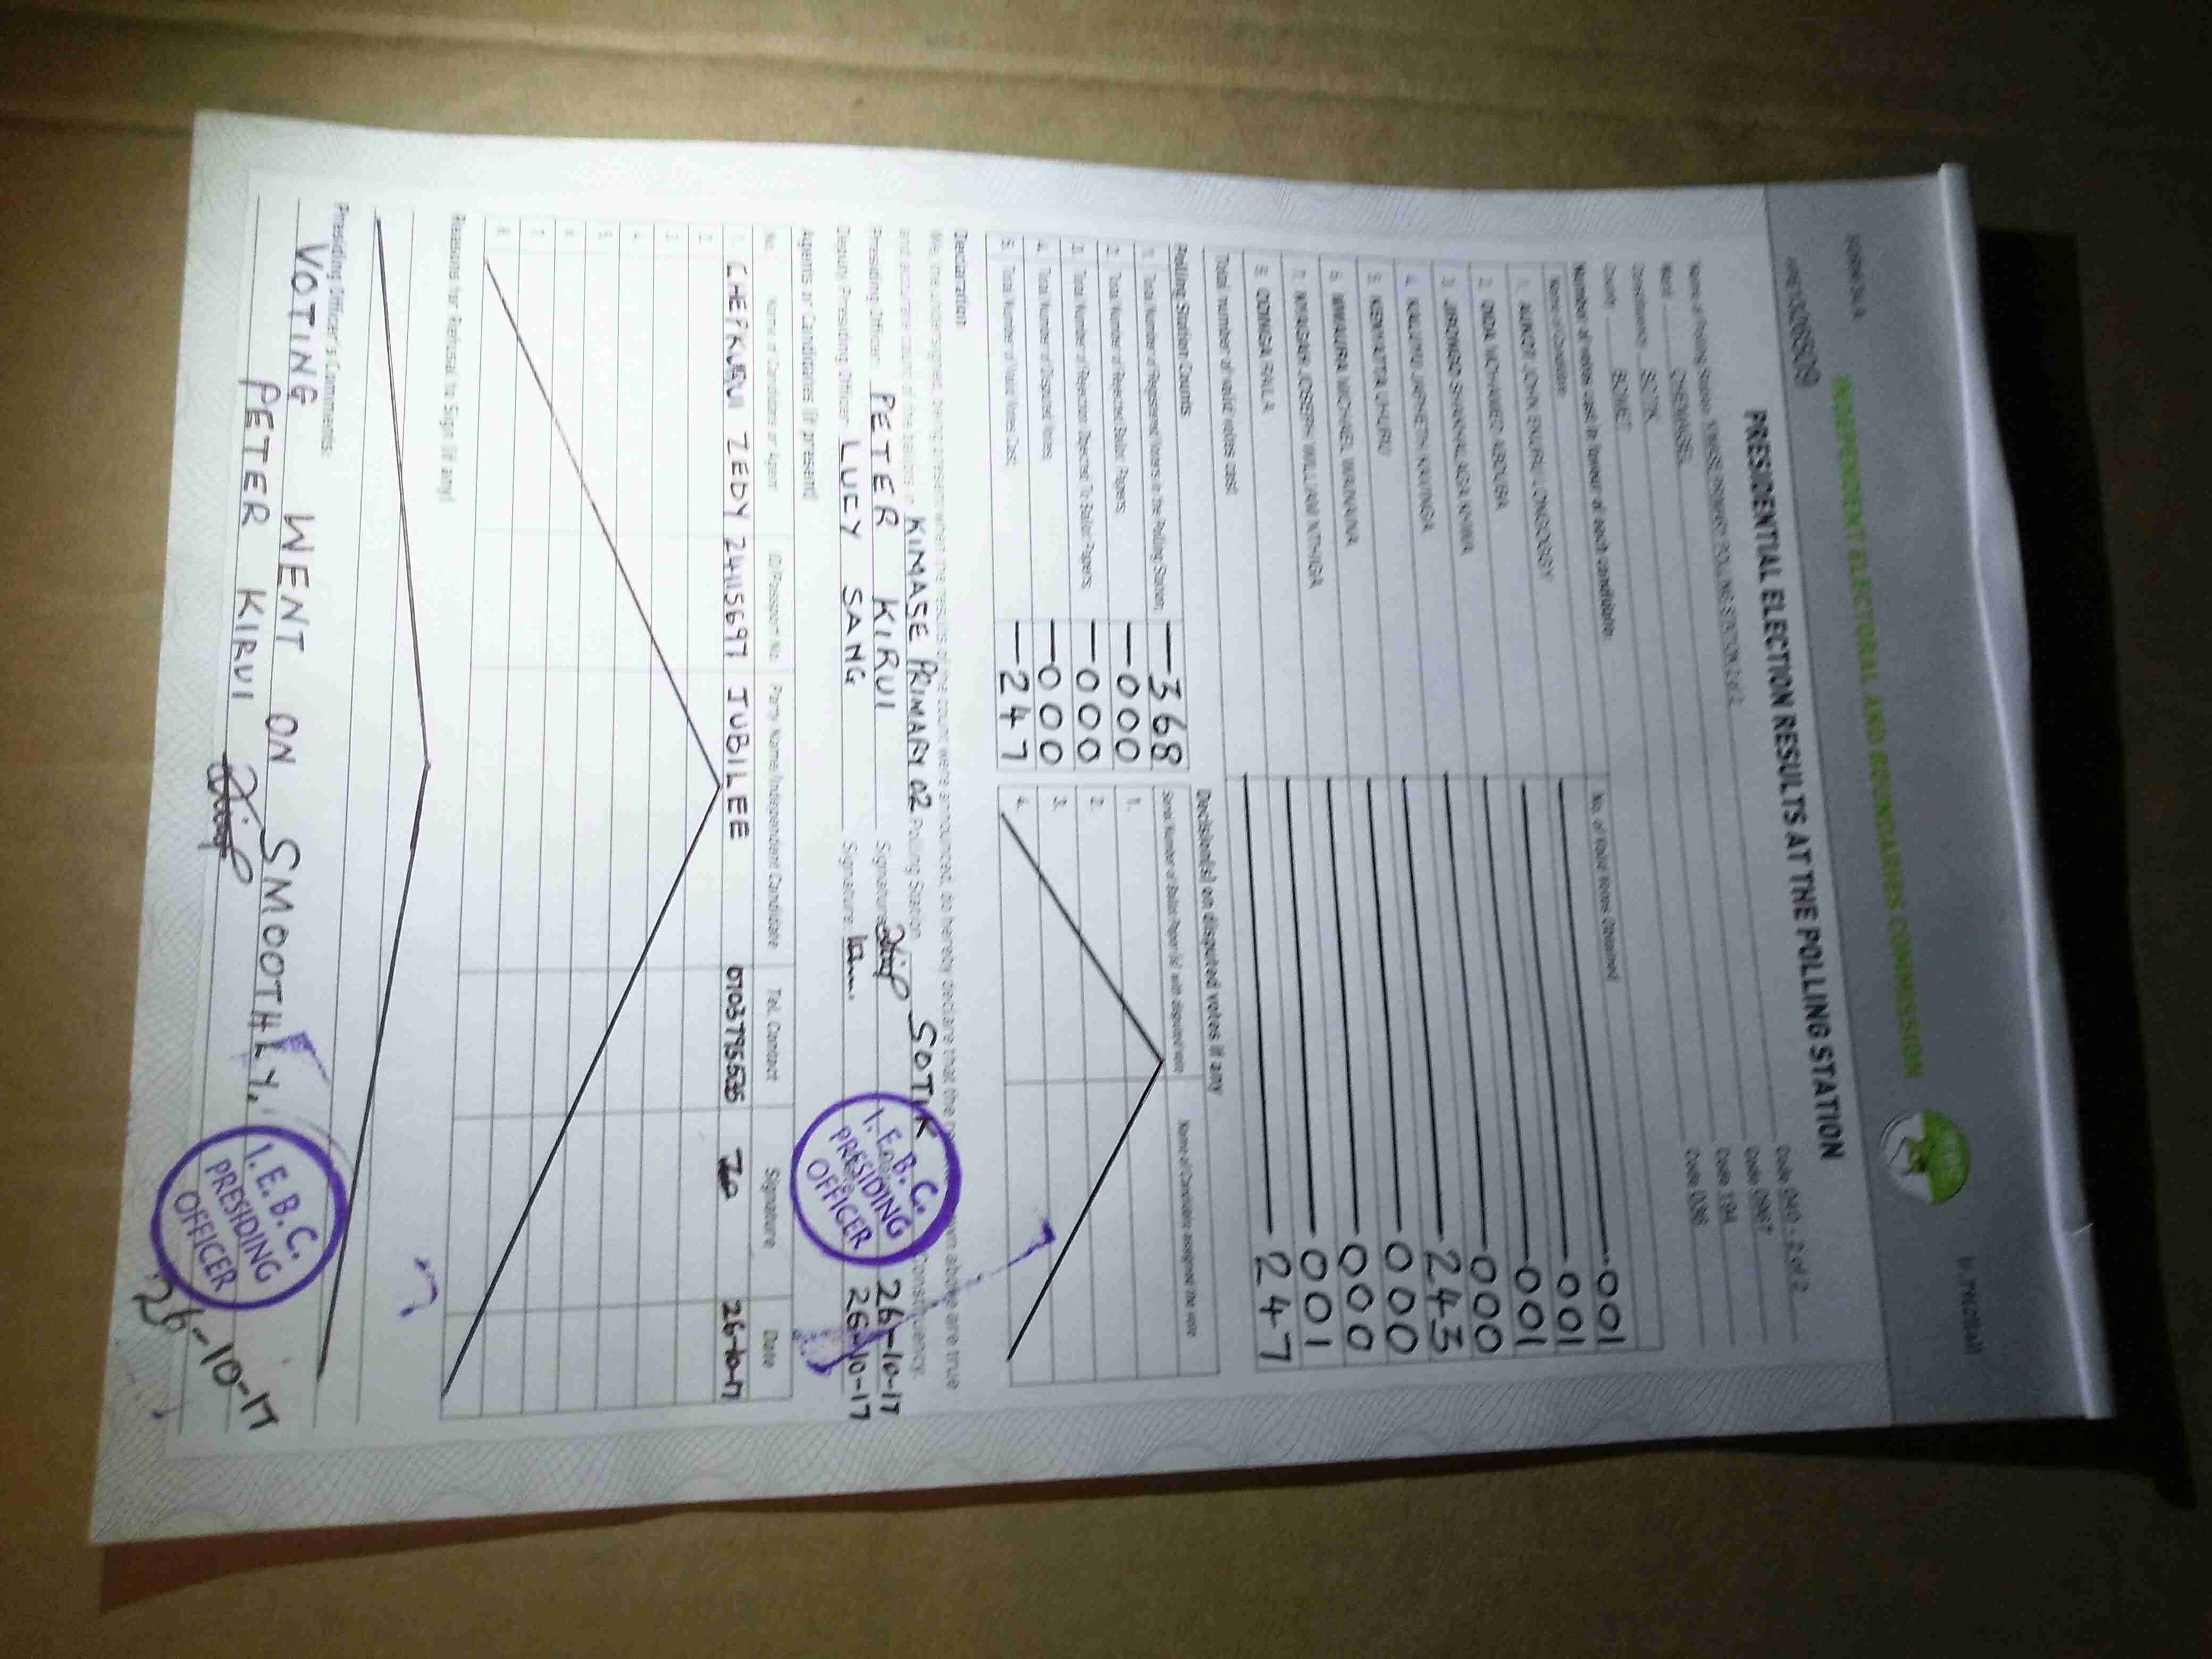 FORM 34 A
INDEPENDENT ELECTORAL AND BOUNDARIES COMMISSION
PRESIDENTIAL ELECTION RESULTS AT THE POLLING STATION
Name of Polling Station KIMASE PRIMARY POLLING STATION 2 of 2 Code 040 - 2 of 2
Ward CHEMAGEL Code 0967
Constituency SOTIK Code 194
County BOMET Code 036
Number of votes cast in favour of each candidate
Name of Candidate No. of Valid Votes Obtained
1. AUKOT JOHN EKURU LONGOGGY 001
2. DIDA MOHAMED ABDUBA 001
3. JIRONGO SHAKHALAGA KHWA 001
4. KALUYU JAPHETH KAVINGA 000
5. KENYATTA UHURU 243
6. MWAURA MICHAEL WAINAINA 000
7. NYAGAH JOSEPH WILLIAM NTHIGA 000
8. ODINGA RAILA 001
Total number of valid votes cast 247
Polling Station Counts
1. Total Number of Registered Voters in the Polling Station; 368
2. Total Number of Rejected Ballot Papers; 000
3. Total Number of Rejection Objected To Ballot Papers; 000
4. Total Number of Disputed Votes; 000
5. Total Number of Valid Votes Cast; 247
Decision(s) on disputed votes if any
Serial Number of Ballot Paper(s) with disputed vote Name of Candidate assigned the vote
1.
2.
3.
4.
Declaration
We, the undersigned, being present when the results of the count were announced, do hereby declare that the above are true
and accurate count of the ballots in KIMASE PRIMARY 02 Polling Station SOTIK Constituency.
Presiding Officer PETER KIRUI Signature 26-10-17
Deputy Presiding Officer LUEY SANG Signature 26-10-17
I.E.B.C.
PRESIDING
OFFICER
Agents or Candidates (if present)
No. Name of Candidate or Agent ID/Passport No. Party Name/Independent Candidate Tel. Contact Signature Date
1. CHEPKURUI ZEDY 24115697 JUBILEE 26-10-17
2.
3.
4.
5.
6.
7.
8.
Reasons for Refusal to Sign (if any)
Presiding Officer's Comments:
VOTING WENT ON SMOOTHLY.
PETER KIRUI
I.E.B.C.
PRESIDING
OFFICER
26-10-17